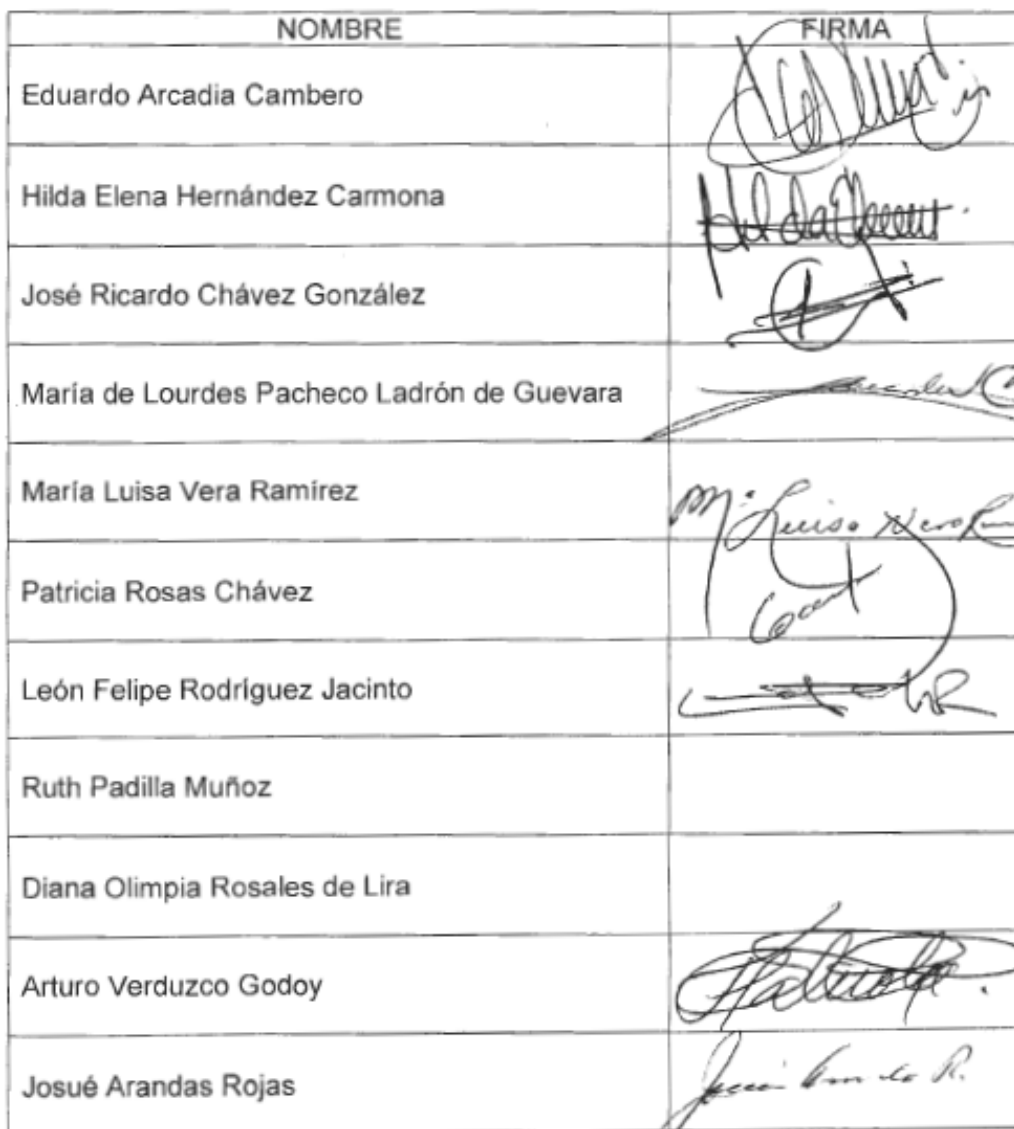 NOMBRE FIRMA
Eduardo Arcadia Cambero
Hilda Elena Hernández Carmona
José Ricardo Chávez González
María de Lourdes Pacheco Ladrón de Guevara
María Luisa Vera Ramírez Mª Luisa Vera
Patricia Rosas Chávez
León Felipe Rodríguez Jacinto
Ruth Padilla Muñoz
Diana Olimpia Rosales de Lira
Arturo Verduzco Godoy
Josué Arandas Rojas